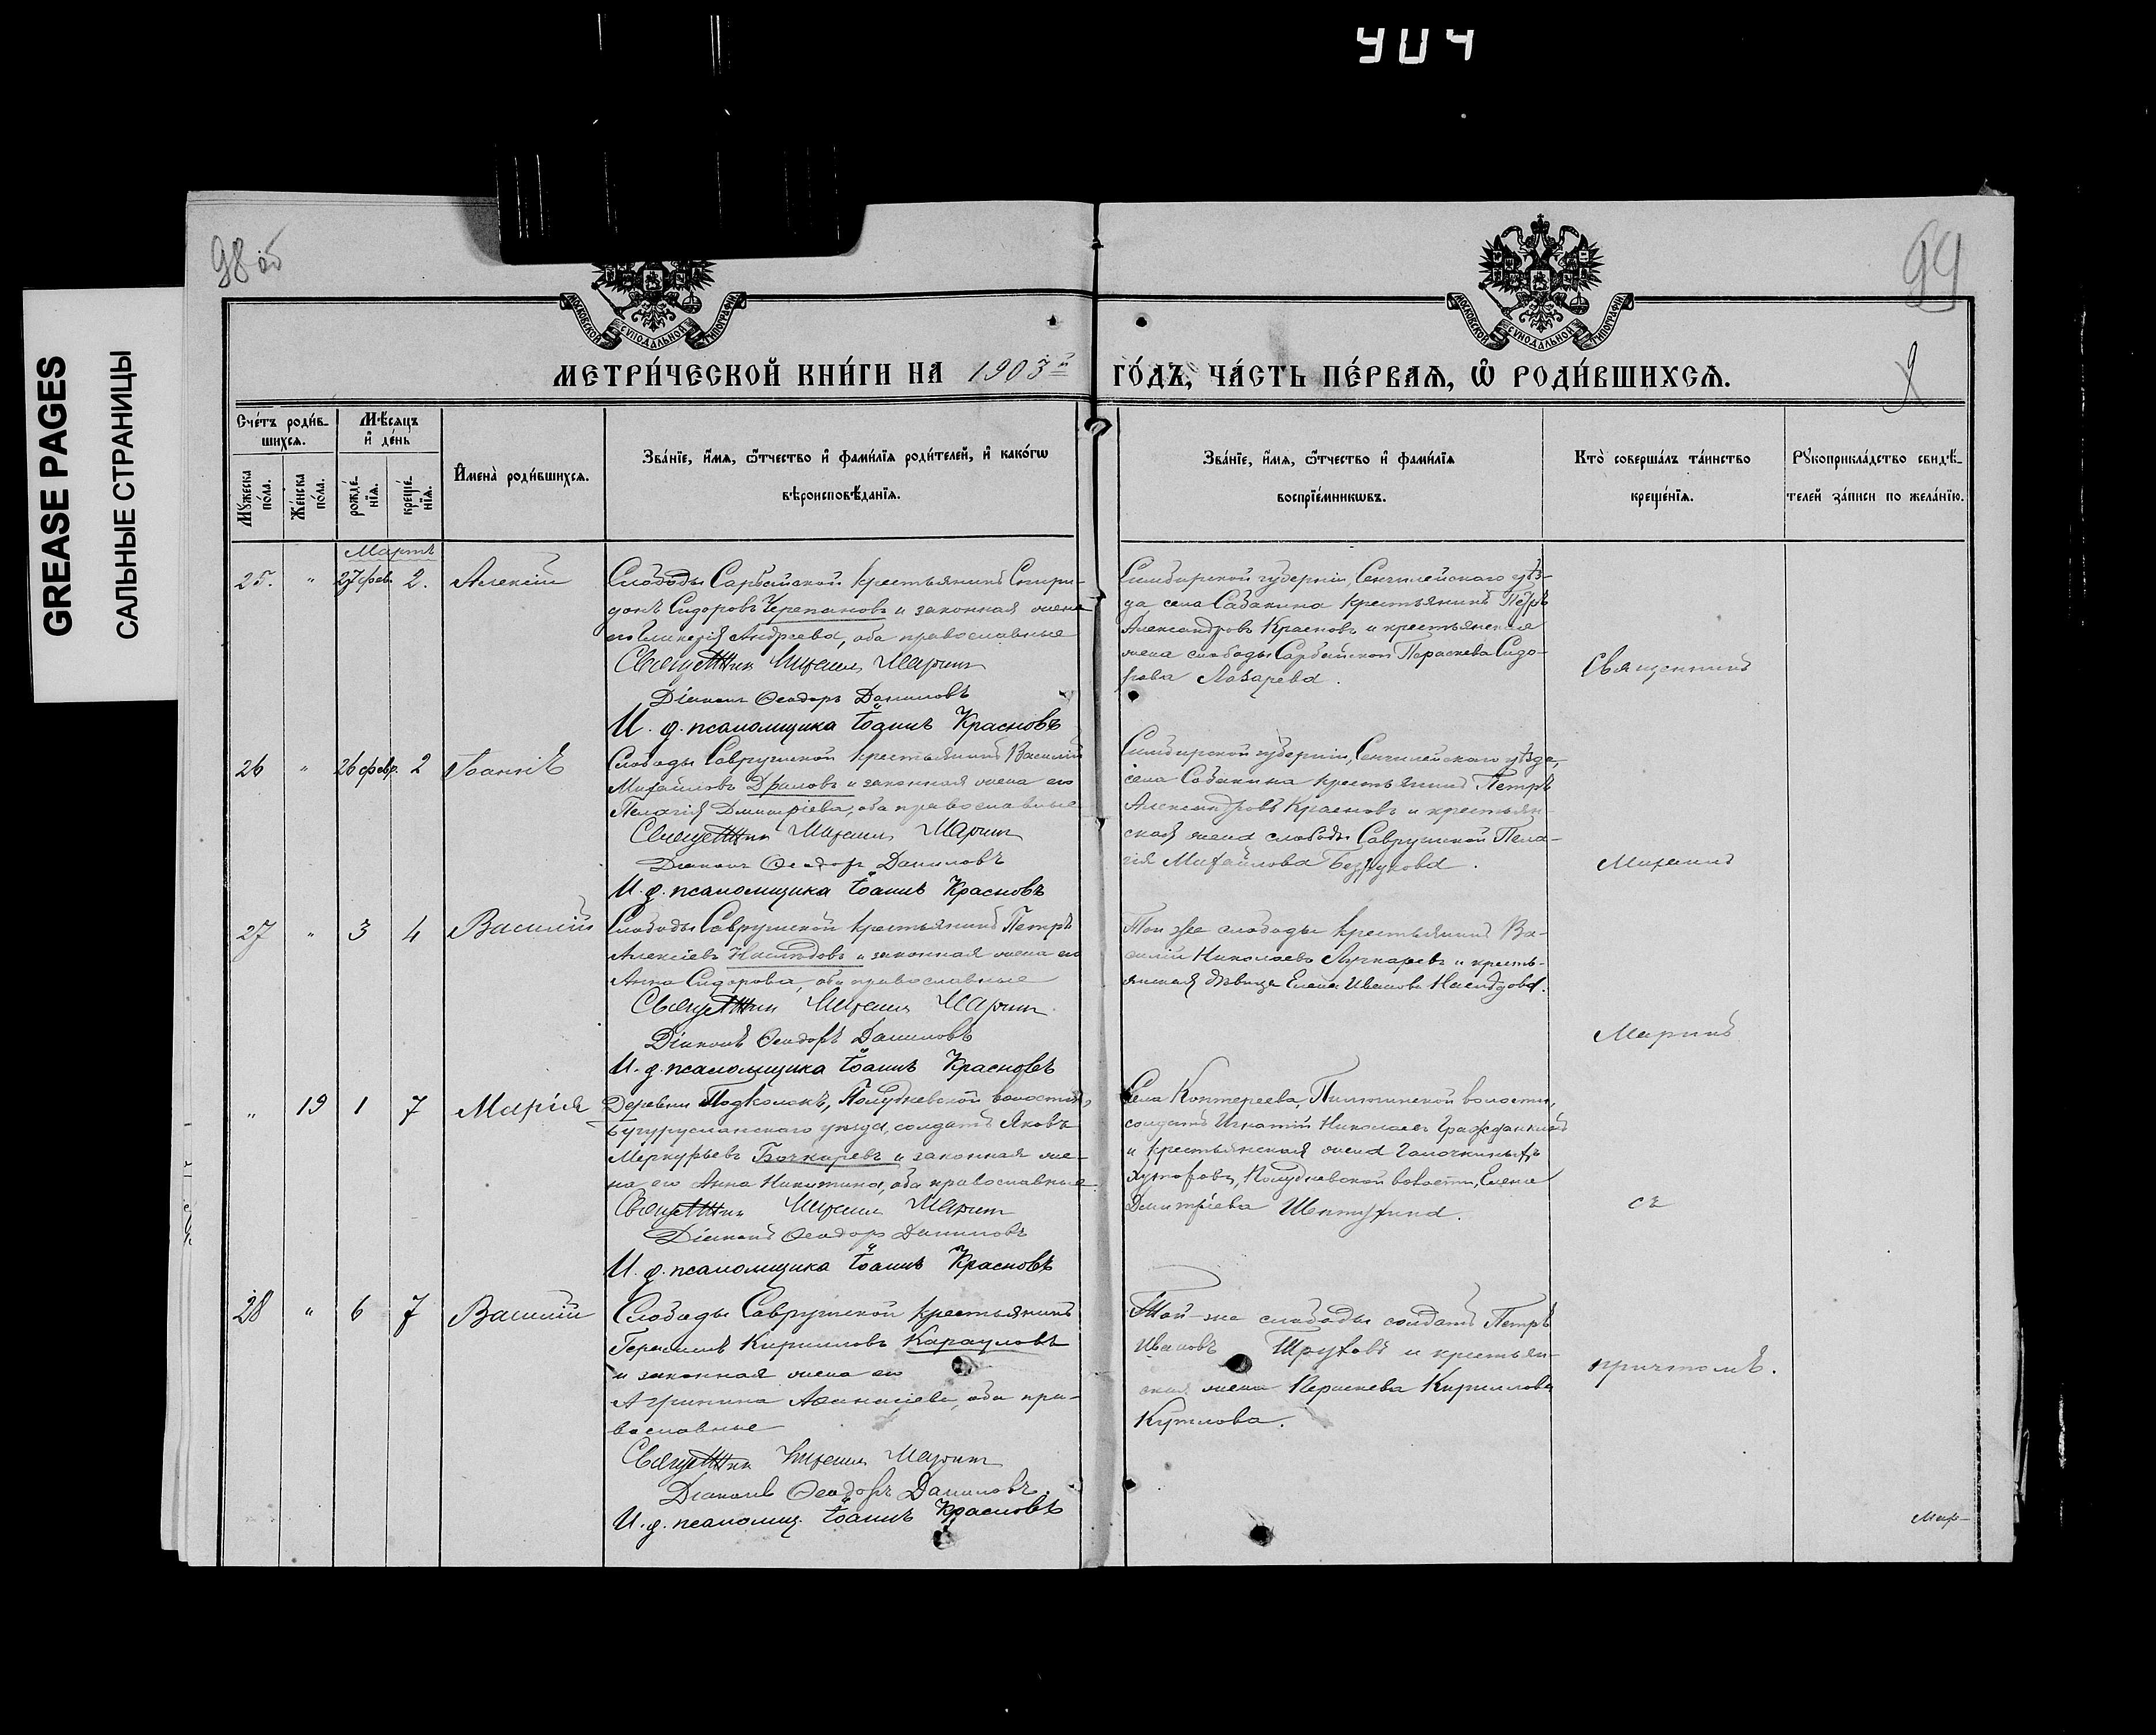 904
GREASE PAGES
САЛЬНЫЕ СТРАНИЦЫ
98 об
99
9
МОСКОВСКОЙ СУНОДАЛЬНОЙ ТИПОГРАФІИ
МОСКОВСКОЙ СУНОДАЛЬНОЙ ТИПОГРАФІИ
МЕТРИ́ЧЕСКОЙ КНИ́ГИ НА 1903й ГО́ДЪ, ЧА́СТЬ ПЕ́РВАѦ, Ѽ РОДИ́ВШИХСѦ.
Сче́тъ роди́в-
шихсѧ.
Мѣ́сѧцъ
и҆ де́нь
Мꙋ́жеска
по́ла.
Же́нска
по́ла.
рожде́-
нїѧ.
креще́-
нїѧ.
И҆мена̀ роди́вшихсѧ.
Зва́нїе, и҆́мѧ, ѻ҆́тчество и҆ фами́лїѧ роди́телей, и҆ како́гѡ
вѣроисповѣ́данїѧ.
Зва́нїе, и҆́мѧ, ѻ҆́тчество и҆ фами́лїѧ
воспрїе́мникѡвъ.
Кто̀ соверша́лъ та́инство
креще́нїѧ.
Рꙋкоприкла́дство свидѣ́-
телей за́писи по жела́нїю.
Мартъ
25. " 27 фев. 2. Алексій
Слободы Сарбайской крестьянинъ Спири-
донъ Сидоровъ Черепановъ и законная жена
его Гликерія Андреева, оба православные
Священникъ Михаилъ Маринъ
Діаконъ Ѳеодоръ Даниловъ
И. д. псаломщика Іоаннъ Красновъ
Симбирской губерніи, Сенгилейскаго уѣз-
да села Собакина крестьянинъ Петръ
Александровъ Красновъ и крестьянская
жена слободы Сарбайской Параскева Сидо-
рова Лазарева.
Священникъ
26 " 26 февр. 2 Іоаннъ
Слободы Саврушской крестьянинъ Василій
Михайловъ и законная жена его
Пелагія Дмитріева, оба православные
Священникъ Михаилъ Маринъ
Діаконъ Ѳеодоръ Даниловъ
И. д. псаломщика Іоаннъ Красновъ
Симбирской губерніи, Сенгилейскаго уѣзда,
села Собакина крестьянинъ Петръ
Александровъ Красновъ и крестьян
ская жена слободы Саврушской Пела-
гія Михайлова Безрукова.
Михаилъ
27 " 3 4 Василій
Слободы Саврушской крестьянинъ Петръ
Алексіевъ Наслѣдовъ и законная жена его
Анна Сидорова, оба православные
Священникъ Михаилъ Маринъ
Діаконъ Ѳеодоръ Даниловъ
И. д. псаломщика Іоаннъ Красновъ
Той же слободы крестьянинъ Ва-
силій Николаевъ и кресть-
янская дѣвица Елена Иванова Наслѣдова.
Маринъ
" 19 1 7 Марія
Деревни Подколокъ, Полудневской волости,
Бугурусланскаго уѣзда, солдатъ Яковъ
Меркурьевъ Бочкаревъ и законная же-
на его Анна Никитина, оба православные
Священникъ Михаилъ Маринъ
Діаконъ Ѳеодоръ Даниловъ
И. д. псаломщика Іоаннъ Красновъ
Села Коптереева, Пилюгинской волости,
солдатъ Игнатій Николаевъ Гражданкинъ
и крестьянская жена Галочкиныхъ
Хуторовъ, Полудневской волости, Елена
Дмитріева
съ
28 " 6 7 Василій
Слободы Саврушской крестьянинъ
Герасимъ Кирилловъ Карауловъ
и законная жена его
Агрипина Аѳанасіева, оба пра-
вославные
Священникъ Михаилъ Маринъ
Діаконъ Ѳеодоръ Даниловъ.
И. д. псаломщ. Іоаннъ Красновъ
Той-же слободы солдатъ Петръ
Ивановъ Труховъ и крестьян-
ская жена Параскева Кириллова
Кутлова.
причтомъ.
Мар-